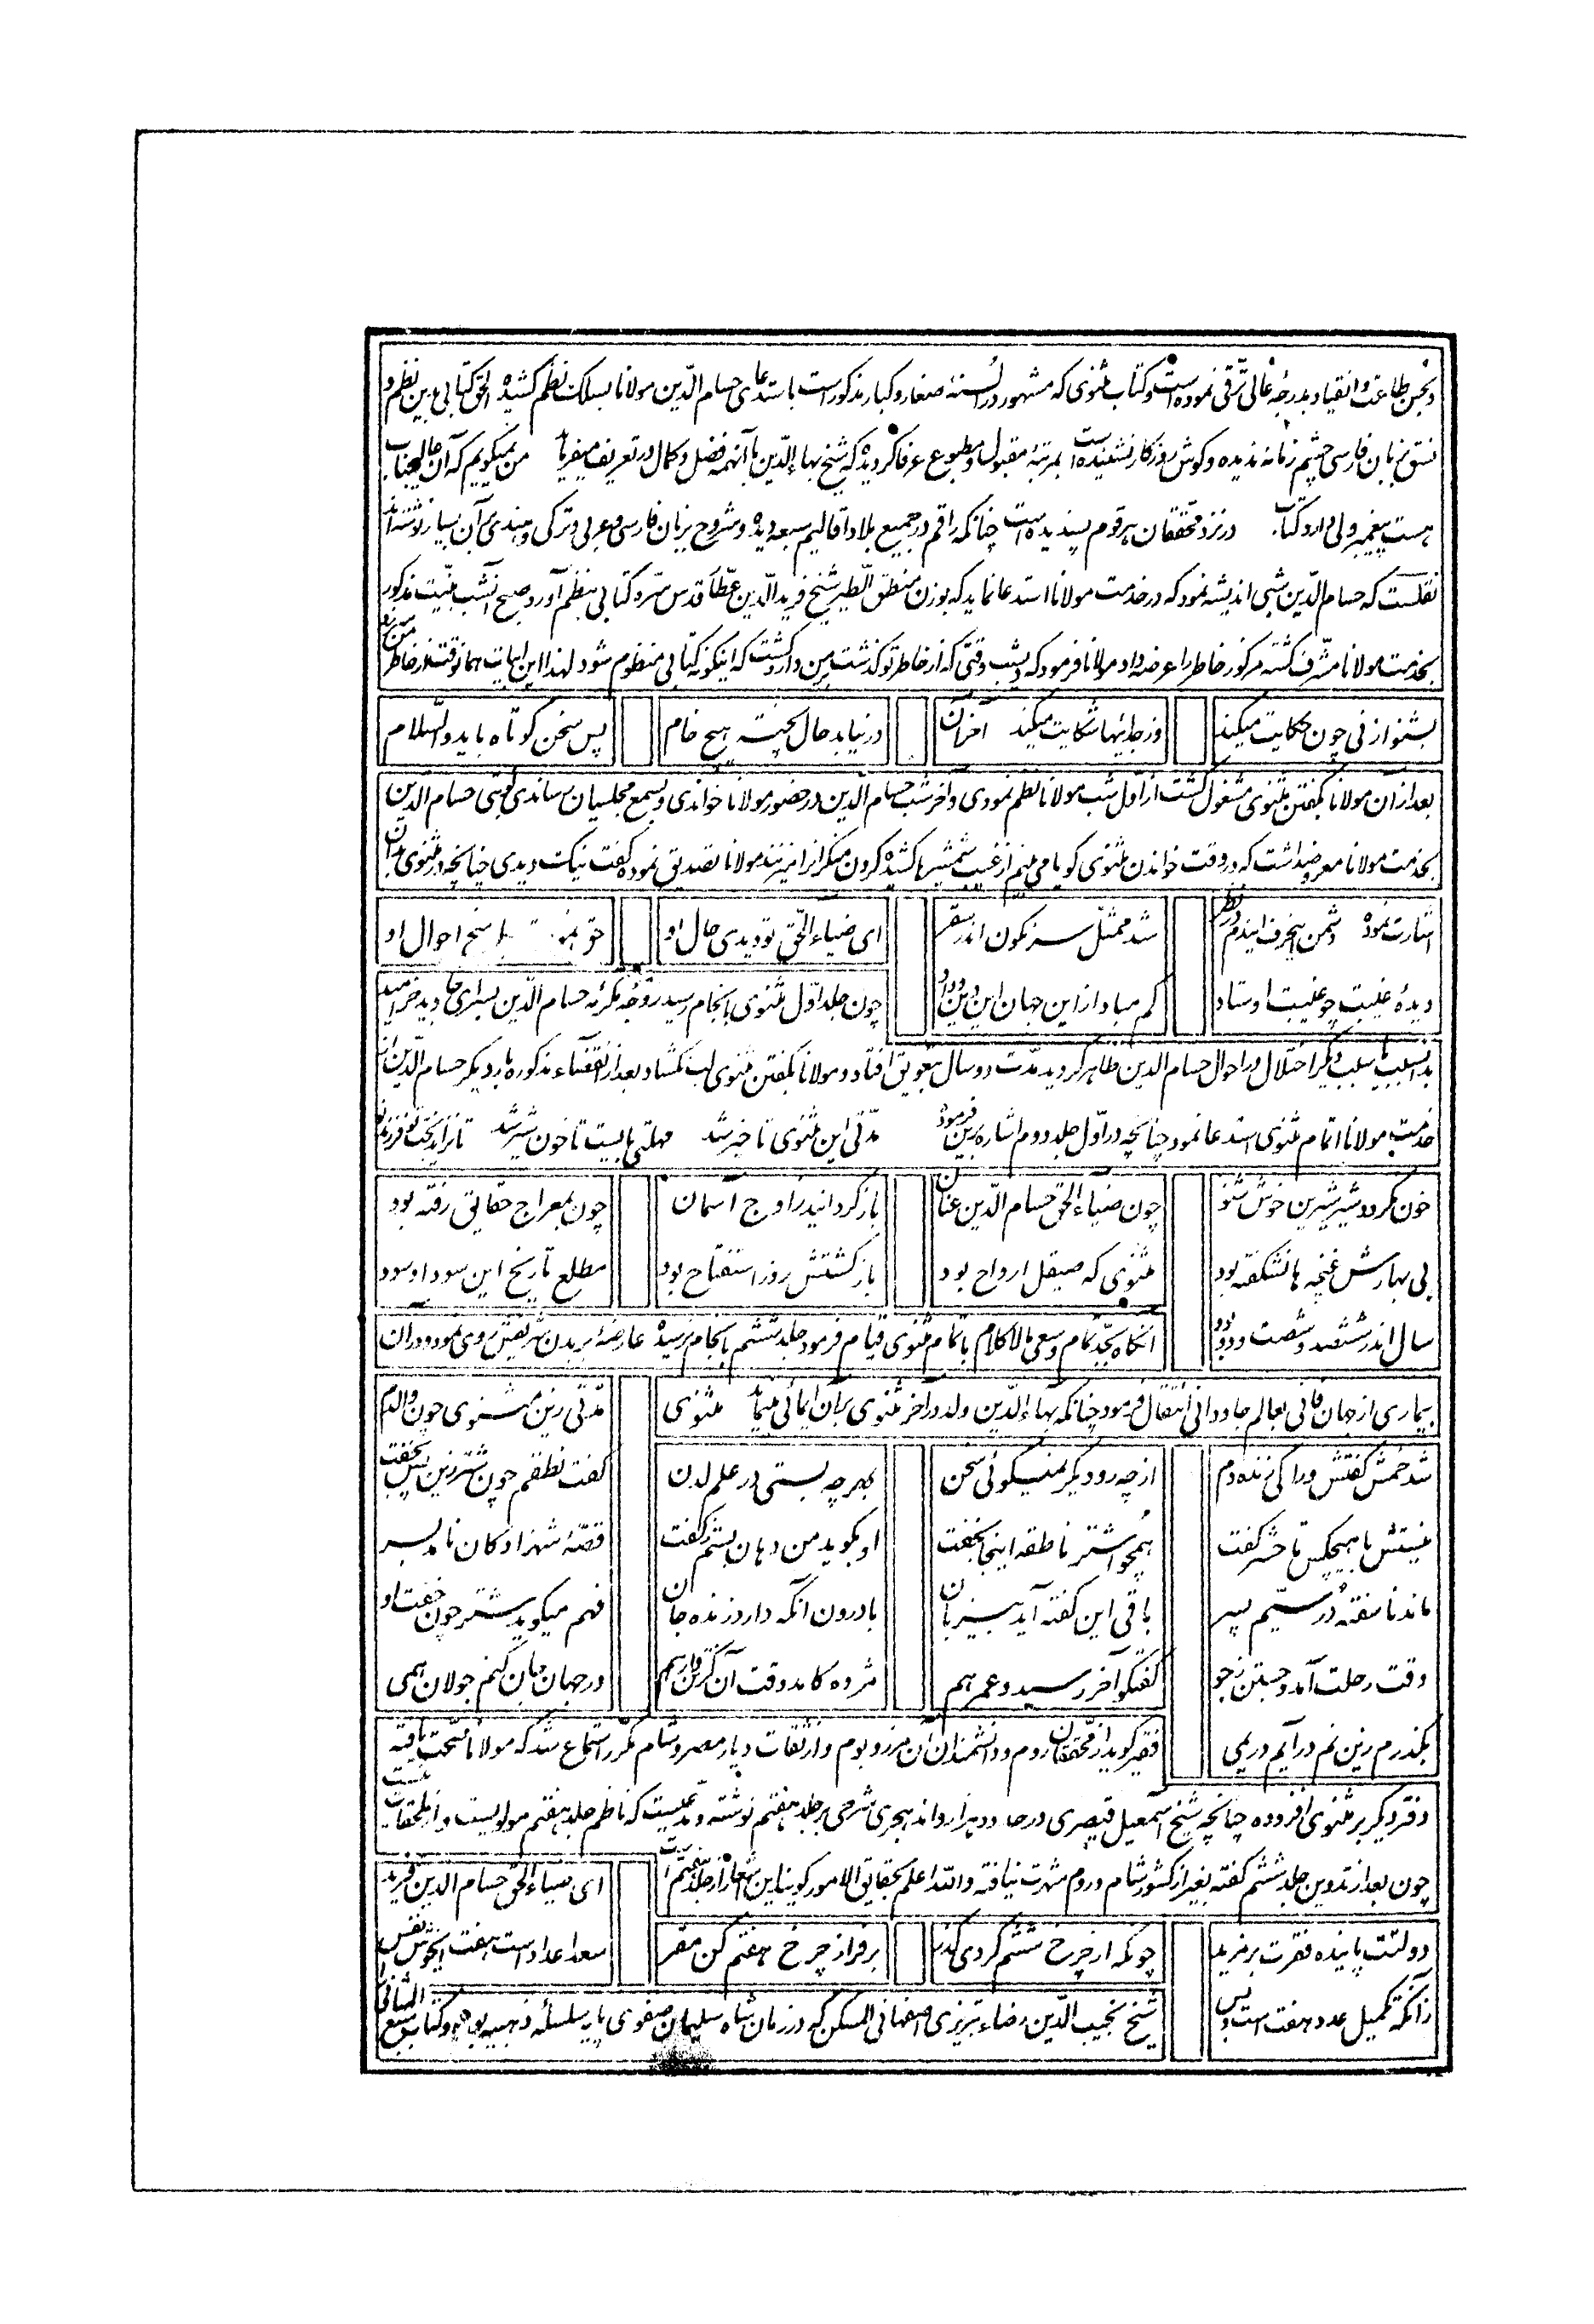 و بحسن طاعت و انقیاد بدرجهٔ عالی ترقی نموده است و کتاب مثنوی که مشهور در السنهٔ صغار و کبار مذکور است باستدعای حسام الدّین مولانا بسلک نظم کشیده الحق کتابی بدین نظم و
نسق بزبان فارسی چشم زمانه ندیده و کوش روزکار نشنیده است بمرتبهٔ مقبول و مطبوع عرفا کردیده که شیخ بهاءالدّین با آنهمه فضل و کمال در تعریف میفرماید من نمیکویم که آن عالیجناب
هست پیغمبر ولی دارد کتاب در نزد محققان هر قوم پسندیده است چنانکه راقم در جمیع بلاد اقالیم سبعه دیده و شروح بزبان فارسی و عربی و ترکی و هندی بر آن بسیار نوشته‌اند
نقلست که حسام الدّین شبی اندیشه نمود که در خدمت مولانا استدعا نماید که بوزن منطق الطیر شیخ فریدالدّین عطّار قدس سّره کتابی بنظم آورد صبح آنشب بنیت مذکور
بخدمت مولانا مشرف کشته مرکوز خاطر را عرضه داد مولانا فرمود که دیشب وقتی که از خاطر تو کذشت بمن وارد کشت که اینکونه کتابی منظوم شود لهذا این ابیات همانوقت از خاطر من
بشنو از نی چون حکایت میکند وز جدائیها شکایت میکند آخر آن در نیابد حال پخته هیچ خام پس سخن کوتاه باید والسّلام
بعد از آن مولانا بکفتن مثنوی مشغول کشت از اول شب مولانا نظم نمودی و آخر شب حسام الدّین در حضور مولانا خواندی و بسمع مجلسیان رساندی نوبتی حسام الدّین
بخدمت مولانا معروضداشت که در وقت خواندن مثنوی کویا می بینم از غیب شمشیرها کشیده کردن منکرانرا میزنند مولانا تصدیق نموده کفت نیکت دیدی چنانچه در مثنوی بدان
اشارت نموده دشمن اینحرف ایندم در نظر شد ممثل سرنکون اندر سقر ای ضیاءالحق تو دیدی حال او حق پاسخ احوال او
دیدهٔ غیبت چو غیبت اوستاد کم مباد از این جهان این دید و داد چون جلد اوّل مثنوی بانجام رسید زوجهٔ مکرّمه حسام الدّین بسرای جاوید خرامید
بدانسبب یا بسبب دیکر اختلال در احوال حسام الدین ظاهر کردید مدّت دو سال بتعویق افتاد و مولانا بکفتن مثنوی لب نکشاد بعد از انقضاء مذکوره بار دیکر حسام الدّین از
خدمت مولانا اتمام مثنوی استدعا نمود چنانچه در اوّل جلد دوم اشاره بدین فرموده مدّتی این مثنوی تأخیر شد مهلتی بایست تا خون شیر شد تا نزاید بخت تو فرزند نو
خون نکردد شیر شیرین خوش شنو چون ضیاءالحق حسام الدّین عنان باز کردانید ز اوج آسمان چون بمعراج حقایق رفته بود
بی بهارش غنچه ها نشکفته بود مثنوی که صیقل ارواح بود باز کشتش روز استفتاح بود مطلع تاریخ این سودا و سود
سال اندر ششصد و شصت و دو بود آنکاه بجّد تمام و سعی مالاکلام باتمام مثنوی قیام فرمود جلد ششم بانجام نرسیده عارضهٔ بر بدن شریفش روی نمود و در آن
بیماری از جهان فانی بعالم جاودانی انتقال فرمود چنانکه بهاءالدّین ولد در آخر مثنوی بر آن ایمائی مینماید مثنوی مدّتی زین مثنوی چون والدم
شد خمش کفتش ورا کی زنده دم از چه رو دیکر نمیکوئی سخن بهر چه بستی در علم لدن کفت نطقم چون شتر زین پس بخفت
نیستش با هیچکس تا حشر کفت همچو اشتر ناطقه اینجا بخفت او بکوید من دهان بستم ز کفت قصّهٔ شهزادکان نامد بسر
ماند ناسفته دُر سیّم پسر باقی این کفته آید بیزبان با درون آنکه دارد زنده جان فهم میکوید شتر چون خفت او
وقت رحلت آمد و جستن ز جو کفتکو آخر رسید و عمر هم مژده کامد وقت آن کز تن وارهم در جهان جان کنم جولان همی
بکذرم زین نم درآیم در یمی فقیر کوید از محققان روم و دانشمندان آن مرز و بوم و از ثقات دیار مصر و شام مکرّر استماع شد که مولانا صحّت یافته
دفتر دیکر بر مثنوی افزوده چنانچه شیخ اسمعیل قیصری در حدود هزار و اند هجری شرحی بر جلد هفتم نوشته و مدعیست که ناظم جلد هفتم مولویست و از ملحقات نیست
چون بعد از تدوین جلد ششم کفته بغیر از کشور شام و روم شهرت نیافته والله اعلم بحقایق الامور کویند این اشعار از جلد هفتم است ای ضیاءالحق حسام الدین فرید
دولتت پاینده فقرت بر مزید چونکه از چرخ ششم کردی کذر بر فراز چرخ هفتم کن مقر سعد اعداد است هفت ای خوش نفس
زانکه تکمیل عدد هفت است و بس شیخ نجیب الدّین رضاء تبریزی اصفهانی المسکن که در زمان شاه سلیمان صفوی پایه سلسلهٔ ذهبیه بوده و کتاب سبع المثانی